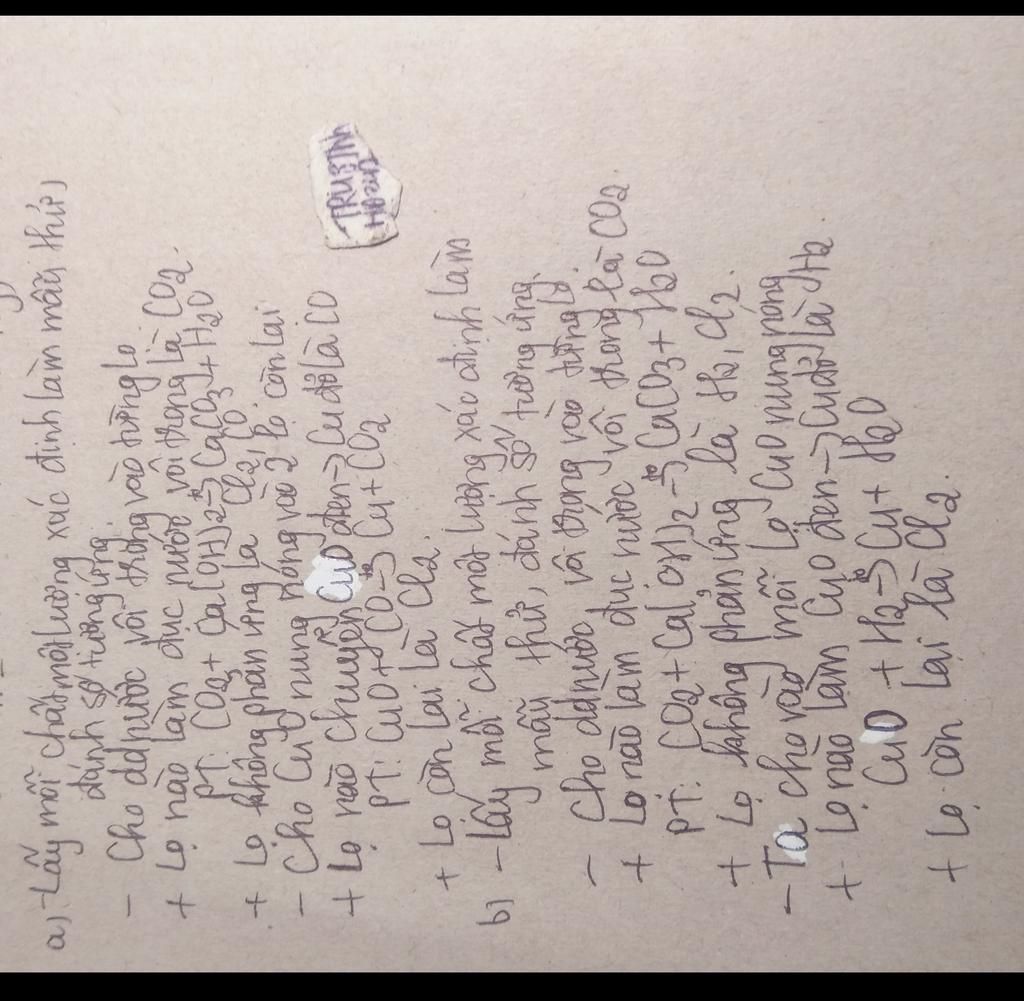 a) - Lấy mỗi chất một lượng xác định làm mẫu thử,
đánh số tương ứng.
- Cho dd nước vôi trong vào từng lọ
+ Lọ nào làm đục nước vôi trong là CO2.
PT: CO2 + Ca(OH)2 -to-> CaCO3 + H2O
+ Lọ không phản ứng là Cl2, CO.
- Cho CuO nung nóng vào 2 lọ còn lại
+ Lọ nào chuyển CuO đen -> Cu đỏ là CO
PT: CuO + CO -to-> Cu + CO2
+ Lọ còn lại là Cl2.
b) - Lấy mỗi chất một lượng xác định làm
mẫu thử, đánh số tương ứng.
- Cho dd nước vôi trong vào từng lọ.
+ Lọ nào làm đục nước vôi trong là CO2.
PT: CO2 + Ca(OH)2 -to-> CaCO3 + H2O
+ Lọ không phản ứng là H2, Cl2.
- Ta cho vào mỗi lọ CuO nung nóng
+ Lọ nào làm CuO đen -> Cu đỏ là H2
CuO + H2 -to-> Cu + H2O
+ Lọ còn lại là Cl2.